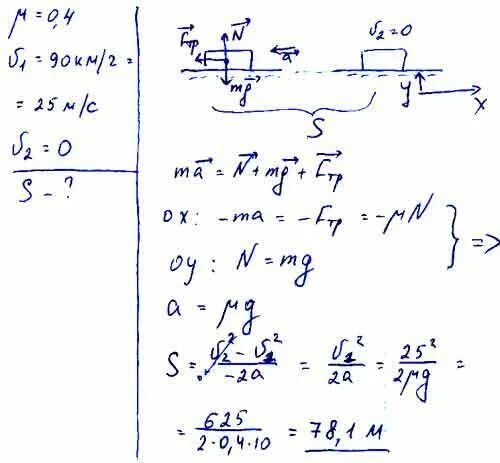 μ = 0,4
υ1 = 90 км/г =
= 25 м/с
υ2 = 0
S - ?
Fтр N a mg
υ2 = 0
S
y x
ma = N + mg + Fтр
ox: -ma = -Fтр = -μN
oy: N = mg
} =>
a = μg
S = (υ2² - υ1²)/(-2a) = υ1²/2a = 25²/2μg =
= 625/(2·0,4·10) = 78,1 м